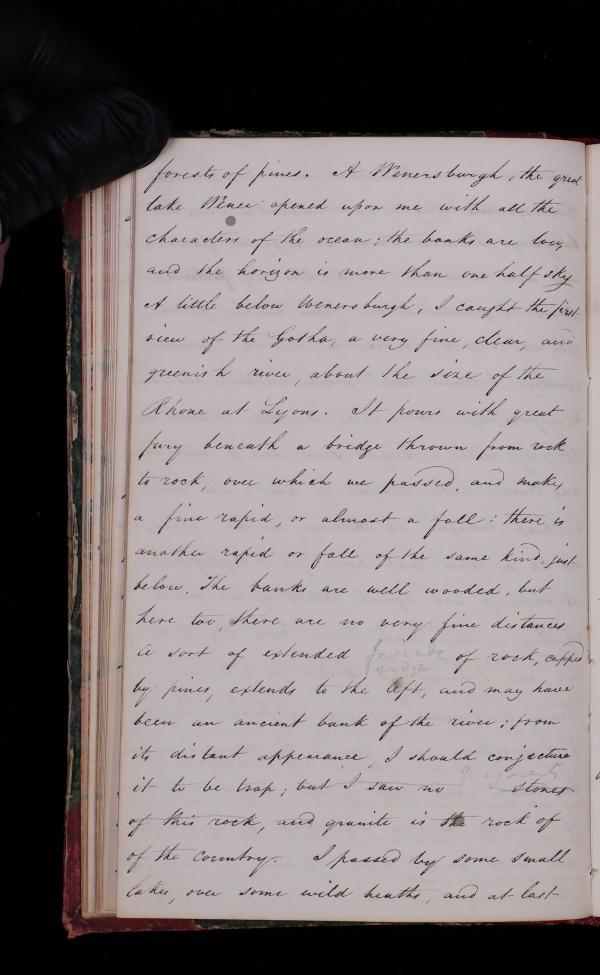 forests of pines. A Wenersburgh, the great
lake Wener opened upon me with all the
characters of the ocean; the banks are low,
and the horizon is more than one half sky
A little below Wenersburgh, I caught the first
view of the Gotha, a very fine, clear, and
greenish river, about the size of the
Rhone at Lyons. It pours with great
fury beneath a bridge thrown from rock
to rock, over which we passed, and makes
a fine rapid, or almost a fall: there is
another rapid or fall of the same kind, just
below. The banks are well wooded, but
here too, there are no very fine distances
A sort of extended of rock, capped
by pines, extends to the left, and may have
been an ancient bank of the river; from
its distant appearance, I should conjecture
it to be trap; but I saw no stones
of this rock, and granite is the rock of
of the country. I passed by some small
lakes, over some wild heaths, and at last